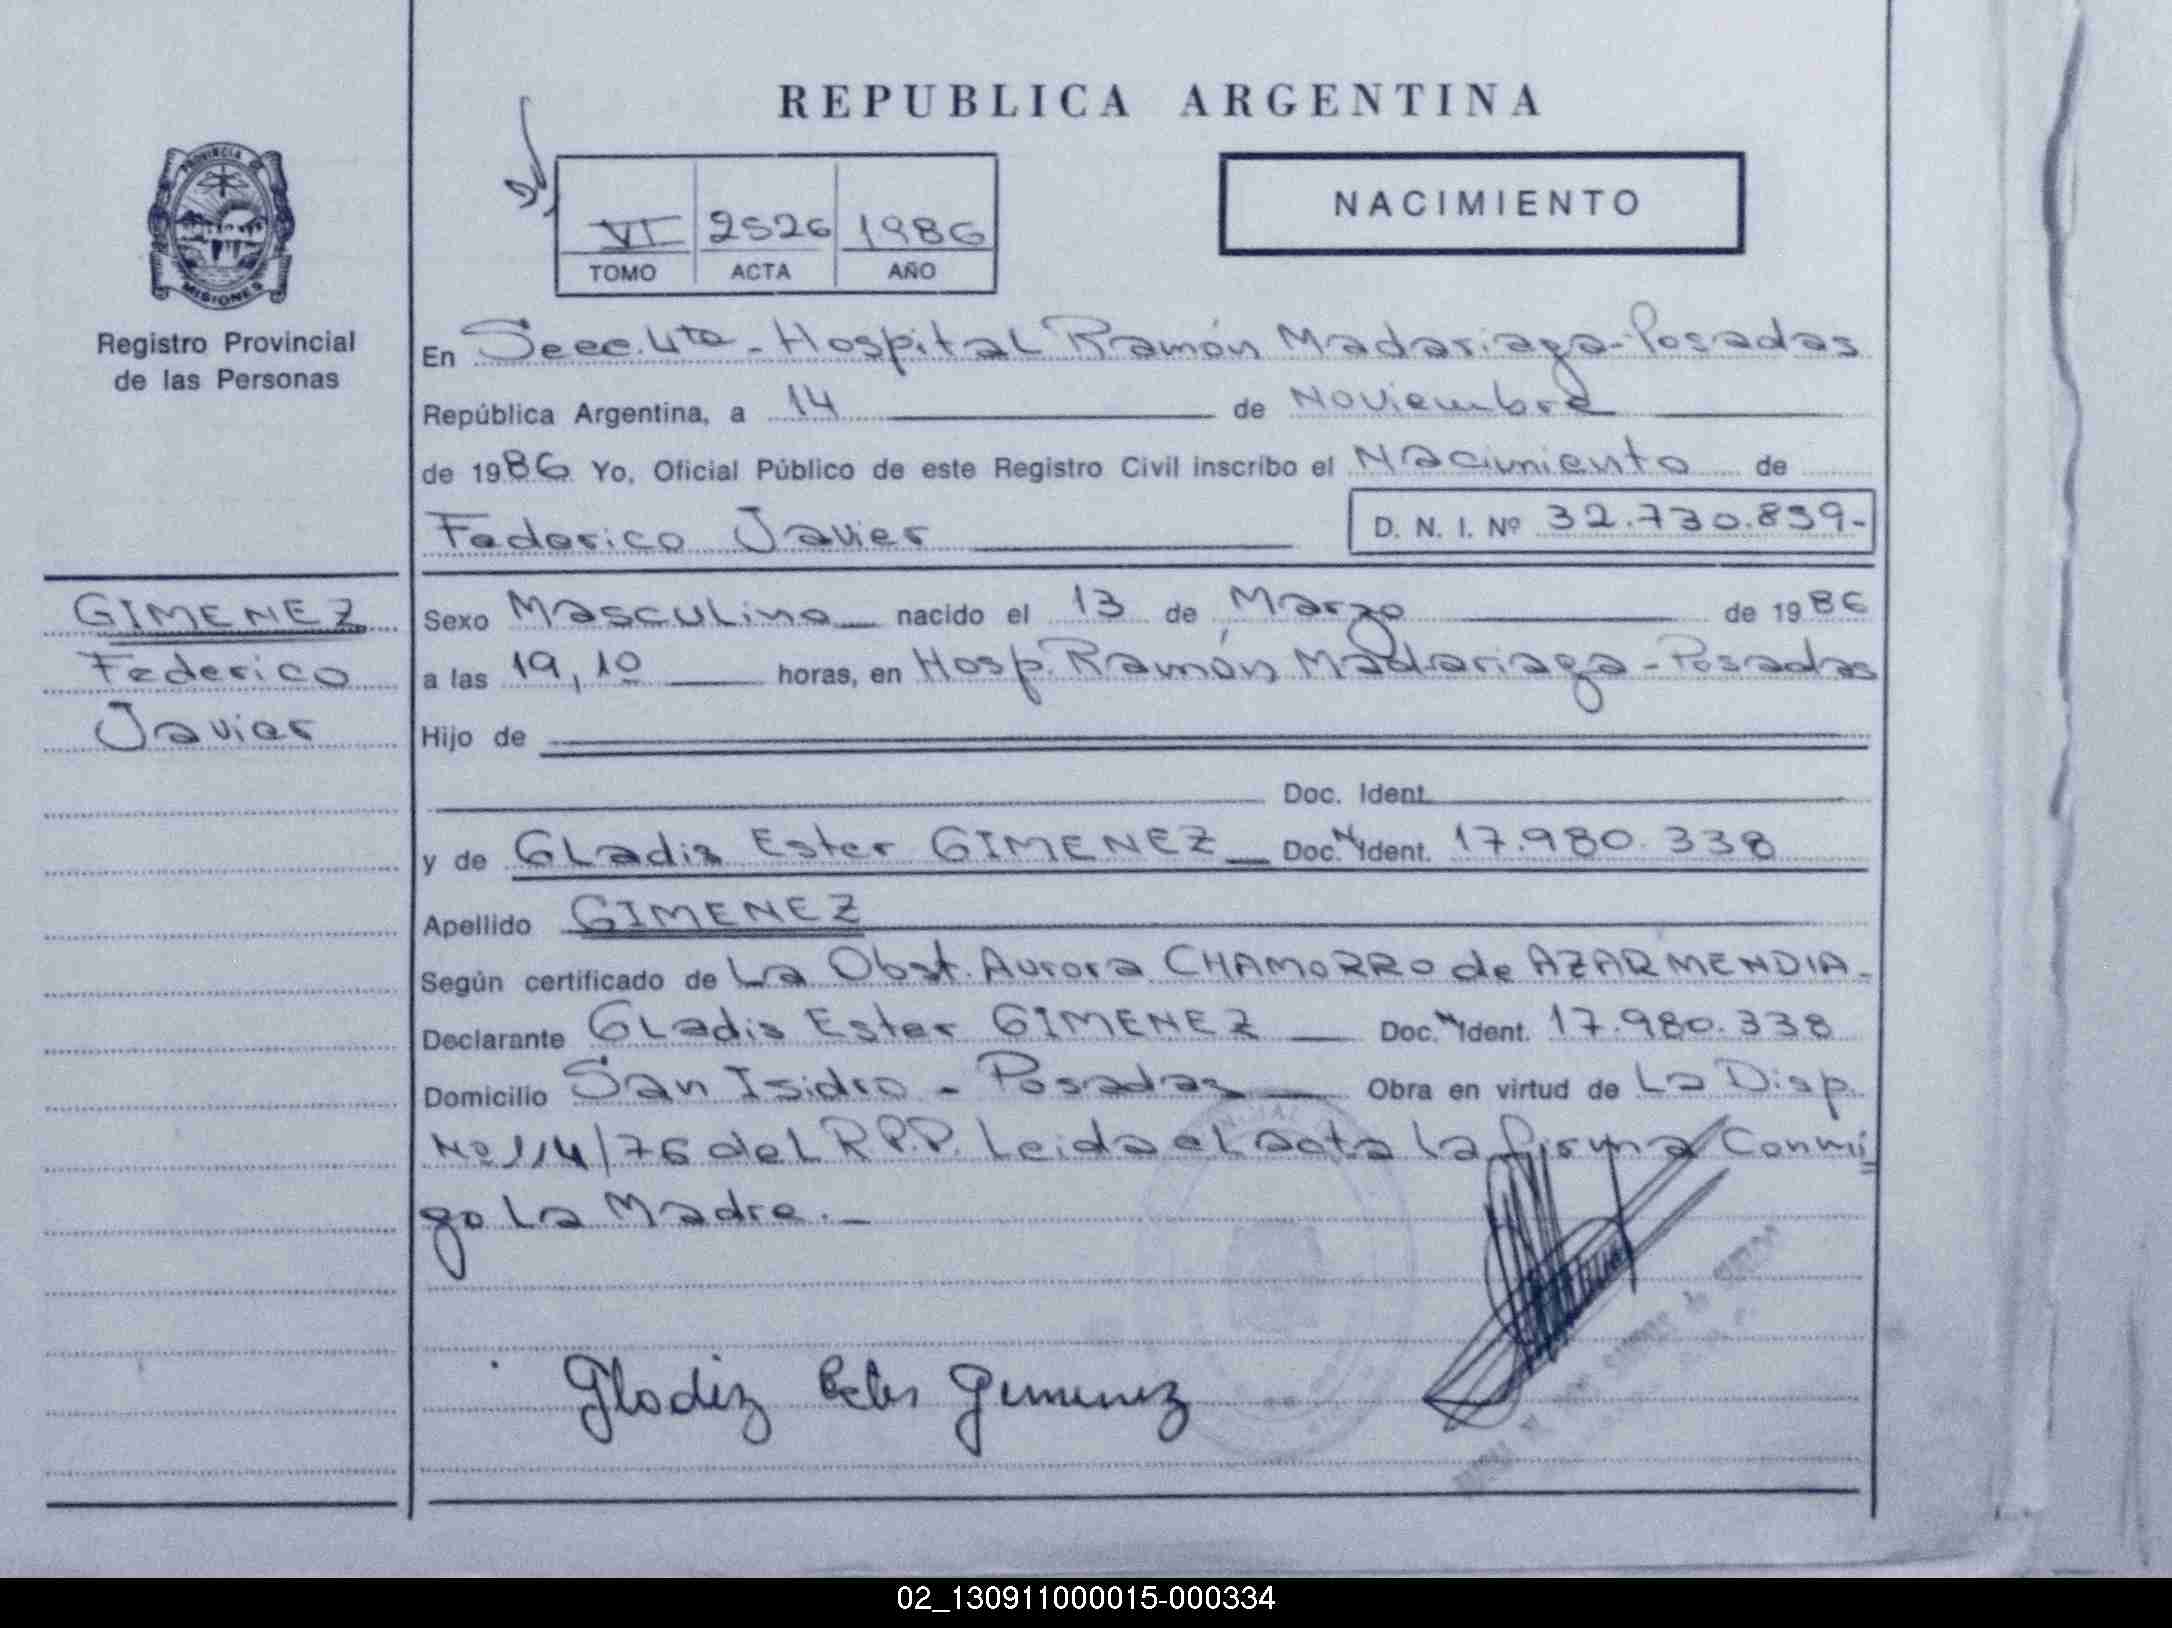 REPUBLICA ARGENTINA
PROVINCIA DE
MISIONES
Registro Provincial
de las Personas
VI 2526 1986
TOMO ACTA AÑO
NACIMIENTO
En Secc. 4ta - Hospital Ramón Madariaga - Posadas
República Argentina, a 14 de Noviembre
de 1986 Yo, Oficial Público de este Registro Civil inscribo el Nacimiento de
Federico Javier D. N. I. Nº 32.730.859-
GIMENEZ
Federico
Javier
Sexo Masculino nacido el 13 de Marzo de 1986
a las 19,10 horas, en Hosp. Ramón Madariaga - Posadas
Hijo de
Doc. Ident.
y de Gladis Ester GIMENEZ Doc. N Ident. 17.980.338
Apellido GIMENEZ
Según certificado de La Obst. Aurora CHAMORRO de AZARMENDIA.
Declarante Gladis Ester GIMENEZ Doc. N Ident. 17.980.338
Domicilio San Isidro - Posadas Obra en virtud de La Disp.
Nº 114/76 del R.P.P. Leida el acta la firma Conmi
go La Madre.
Gladiz Ester Gimenez
02_130911000015-000334